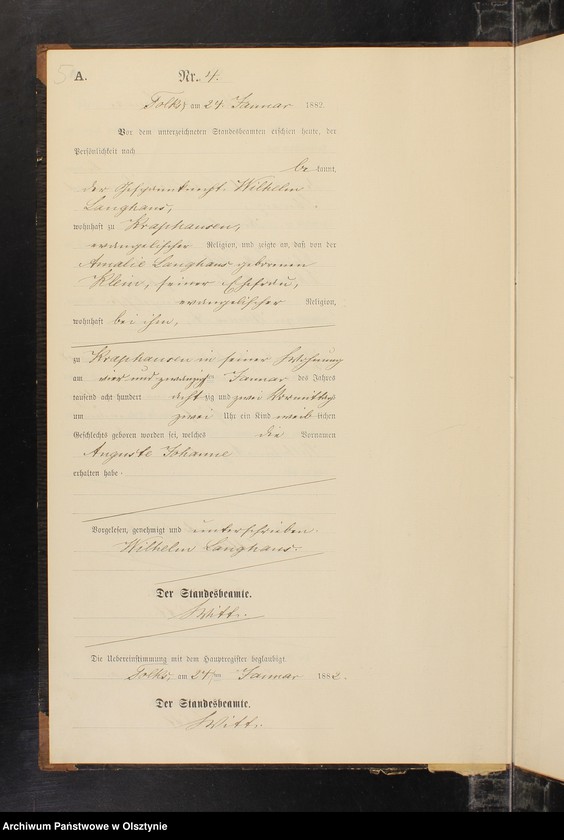 5
A.
Nr. 4.
Tolks, am 24. Januar 1882.
Vor dem unterzeichneten Standesbeamten erschien heute, der
Persönlichkeit nach
be kannt,
der Gespannknecht Wilhelm
Langhans,
wohnhaft zu Kraphausen,
evangelischer Religion, und zeigte an, daß von der
Amalie Langhans gebornen
Klein, seiner Ehefrau,
evangelischer Religion,
wohnhaft bei ihm,
zu Kraphausen in seiner Wohnung
am vier und zwanzigsten Januar des Jahres
tausend acht hundert achtzig und zwei Vormittags
um zwei Uhr ein Kind weiblichen
Geschlechts geboren worden sei, welches die Vornamen
Auguste Johanne
erhalten habe.
Vorgelesen, genehmigt und unterschrieben.
Wilhelm Langhans.
Der Standesbeamte.
Witt.
Die Uebereinstimmung mit dem Hauptregister beglaubigt.
Tolks, am 24ten Januar 1882.
Der Standesbeamte.
Witt.
Archiwum Państwowe w Olsztynie